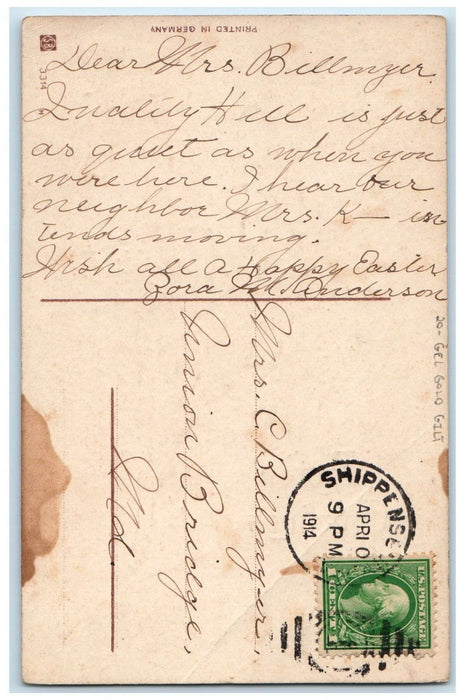 PRINTED IN GERMANY
3314
Dear Mrs. Billmyer.
Quality Hill is just
as quiet as when you
were here. I hear our
neighbor Mrs. K— in
tends moving.
Wish all a Happy Easter
Zora M. Anderson
Mrs. C. Billmyer,
Union Bridge,
Md.
20- GEL GOLD GILT
SHIPPENSB
APR 10
9 PM
1914
U.S. POSTAGE
1 CENT 1